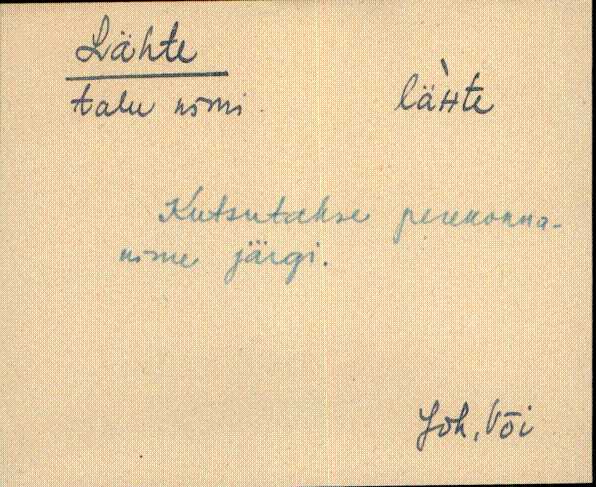 Lähte
talu nimi. lä̀ʜte
Kutsutakse perekonna-
nime järgi.
Joh, Või